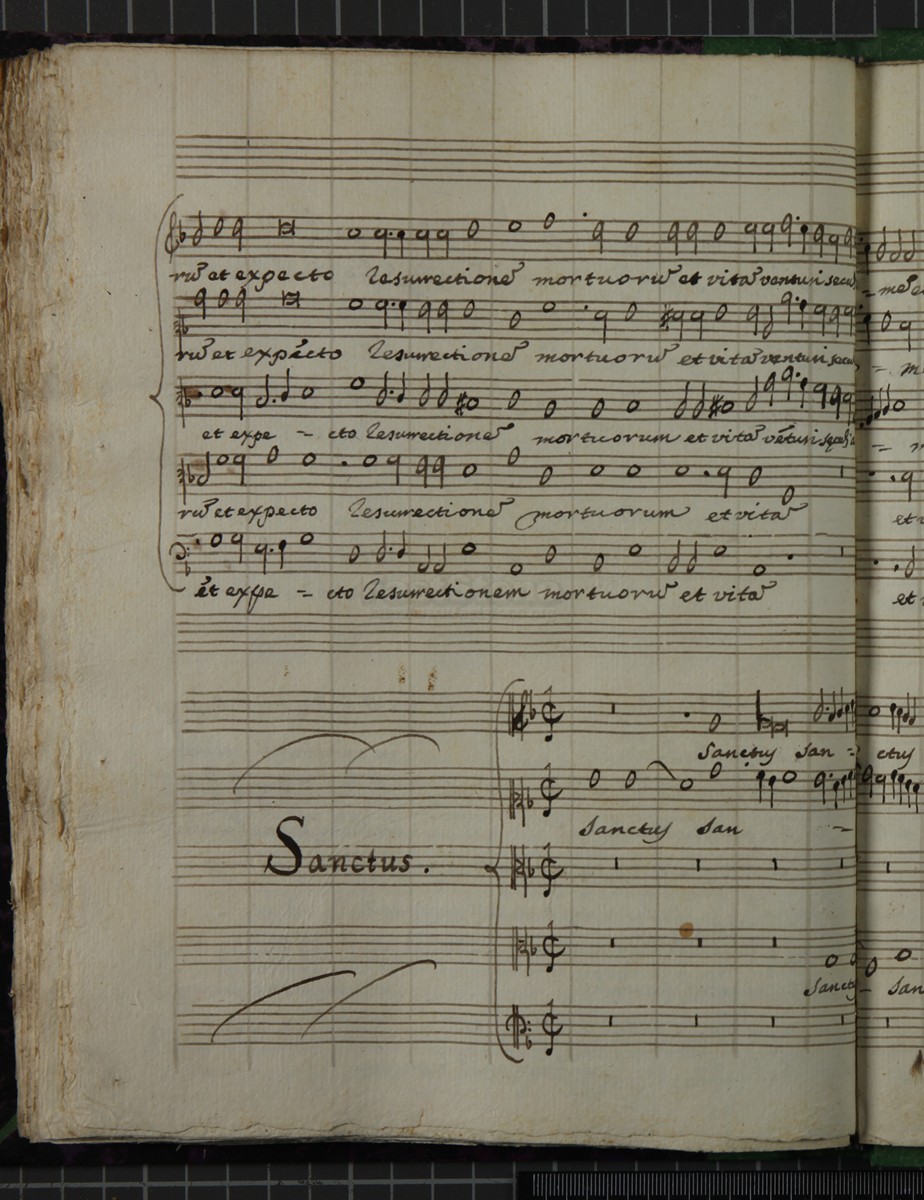 rũ et expecto Resurrectionẽ mortuorũ et vitã venturi secu
rũ et expecto Resurrectionẽ mortuorũ et vitã venturi secu
et expe = cto Resurrectionẽ mortuorum et vitã vẽturi
rũ et expecto Resurrectionẽ mortuorum et vitã
et expe = cto Resurrectionem mortuorũ et vitã
et
Sanctus San = ctus
Sanctus San -
Sanctus.
Sanctus San